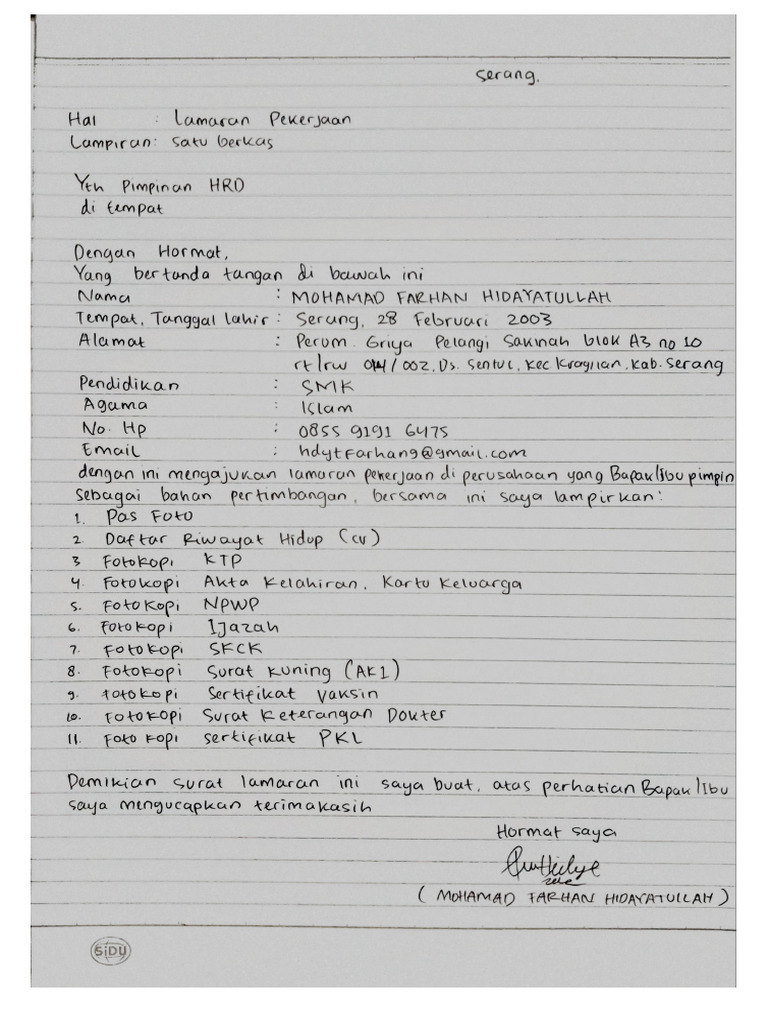 Serang.
Hal : Lamaran Pekerjaan
Lampiran: Satu berkas
Yth Pimpinan HRD
di tempat
Dengan Hormat,
Yang bertanda tangan di bawah ini
Nama : MOHAMAD FARHAN HIDAYATULLAH
Tempat, Tanggal lahir : Serang, 28 Februari 2003
Alamat : Perum. Griya Pelangi Sakinah blok A3 no 10
rt/rw /002, Ds. Sentul, Kec Kragilan, Kab. Serang
Pendidikan : SMK
Agama : Islam
No. Hp : 0855 9191 6475
Email : hdytfarhang@gmail.com
dengan ini mengajukan lamaran pekerjaan di perusahaan yang Bapak/Ibu pimpin
Sebagai bahan pertimbangan, bersama ini saya lampirkan:
1. Pas Foto
2 Daftar Riwayat Hidup (cv)
3 Fotokopi KTP
4. Fotokopi Akta Kelahiran, Kartu Keluarga
5. Fotokopi NPWP
6. Fotokopi Ijazah
7. Fotokopi SKCK
8. Fotokopi Surat Kuning (AK1)
9. Fotokopi Sertifikat Vaksin
10. Fotokopi Surat Keterangan Dokter
11. Foto kopi sertifikat PKL
Demikian surat lamaran ini saya buat, atas perhatian Bapak/Ibu
saya mengucapkan terimakasih
Hormat saya
( MOHAMAD FARHAN HIDAYATULLAH )
SiDU